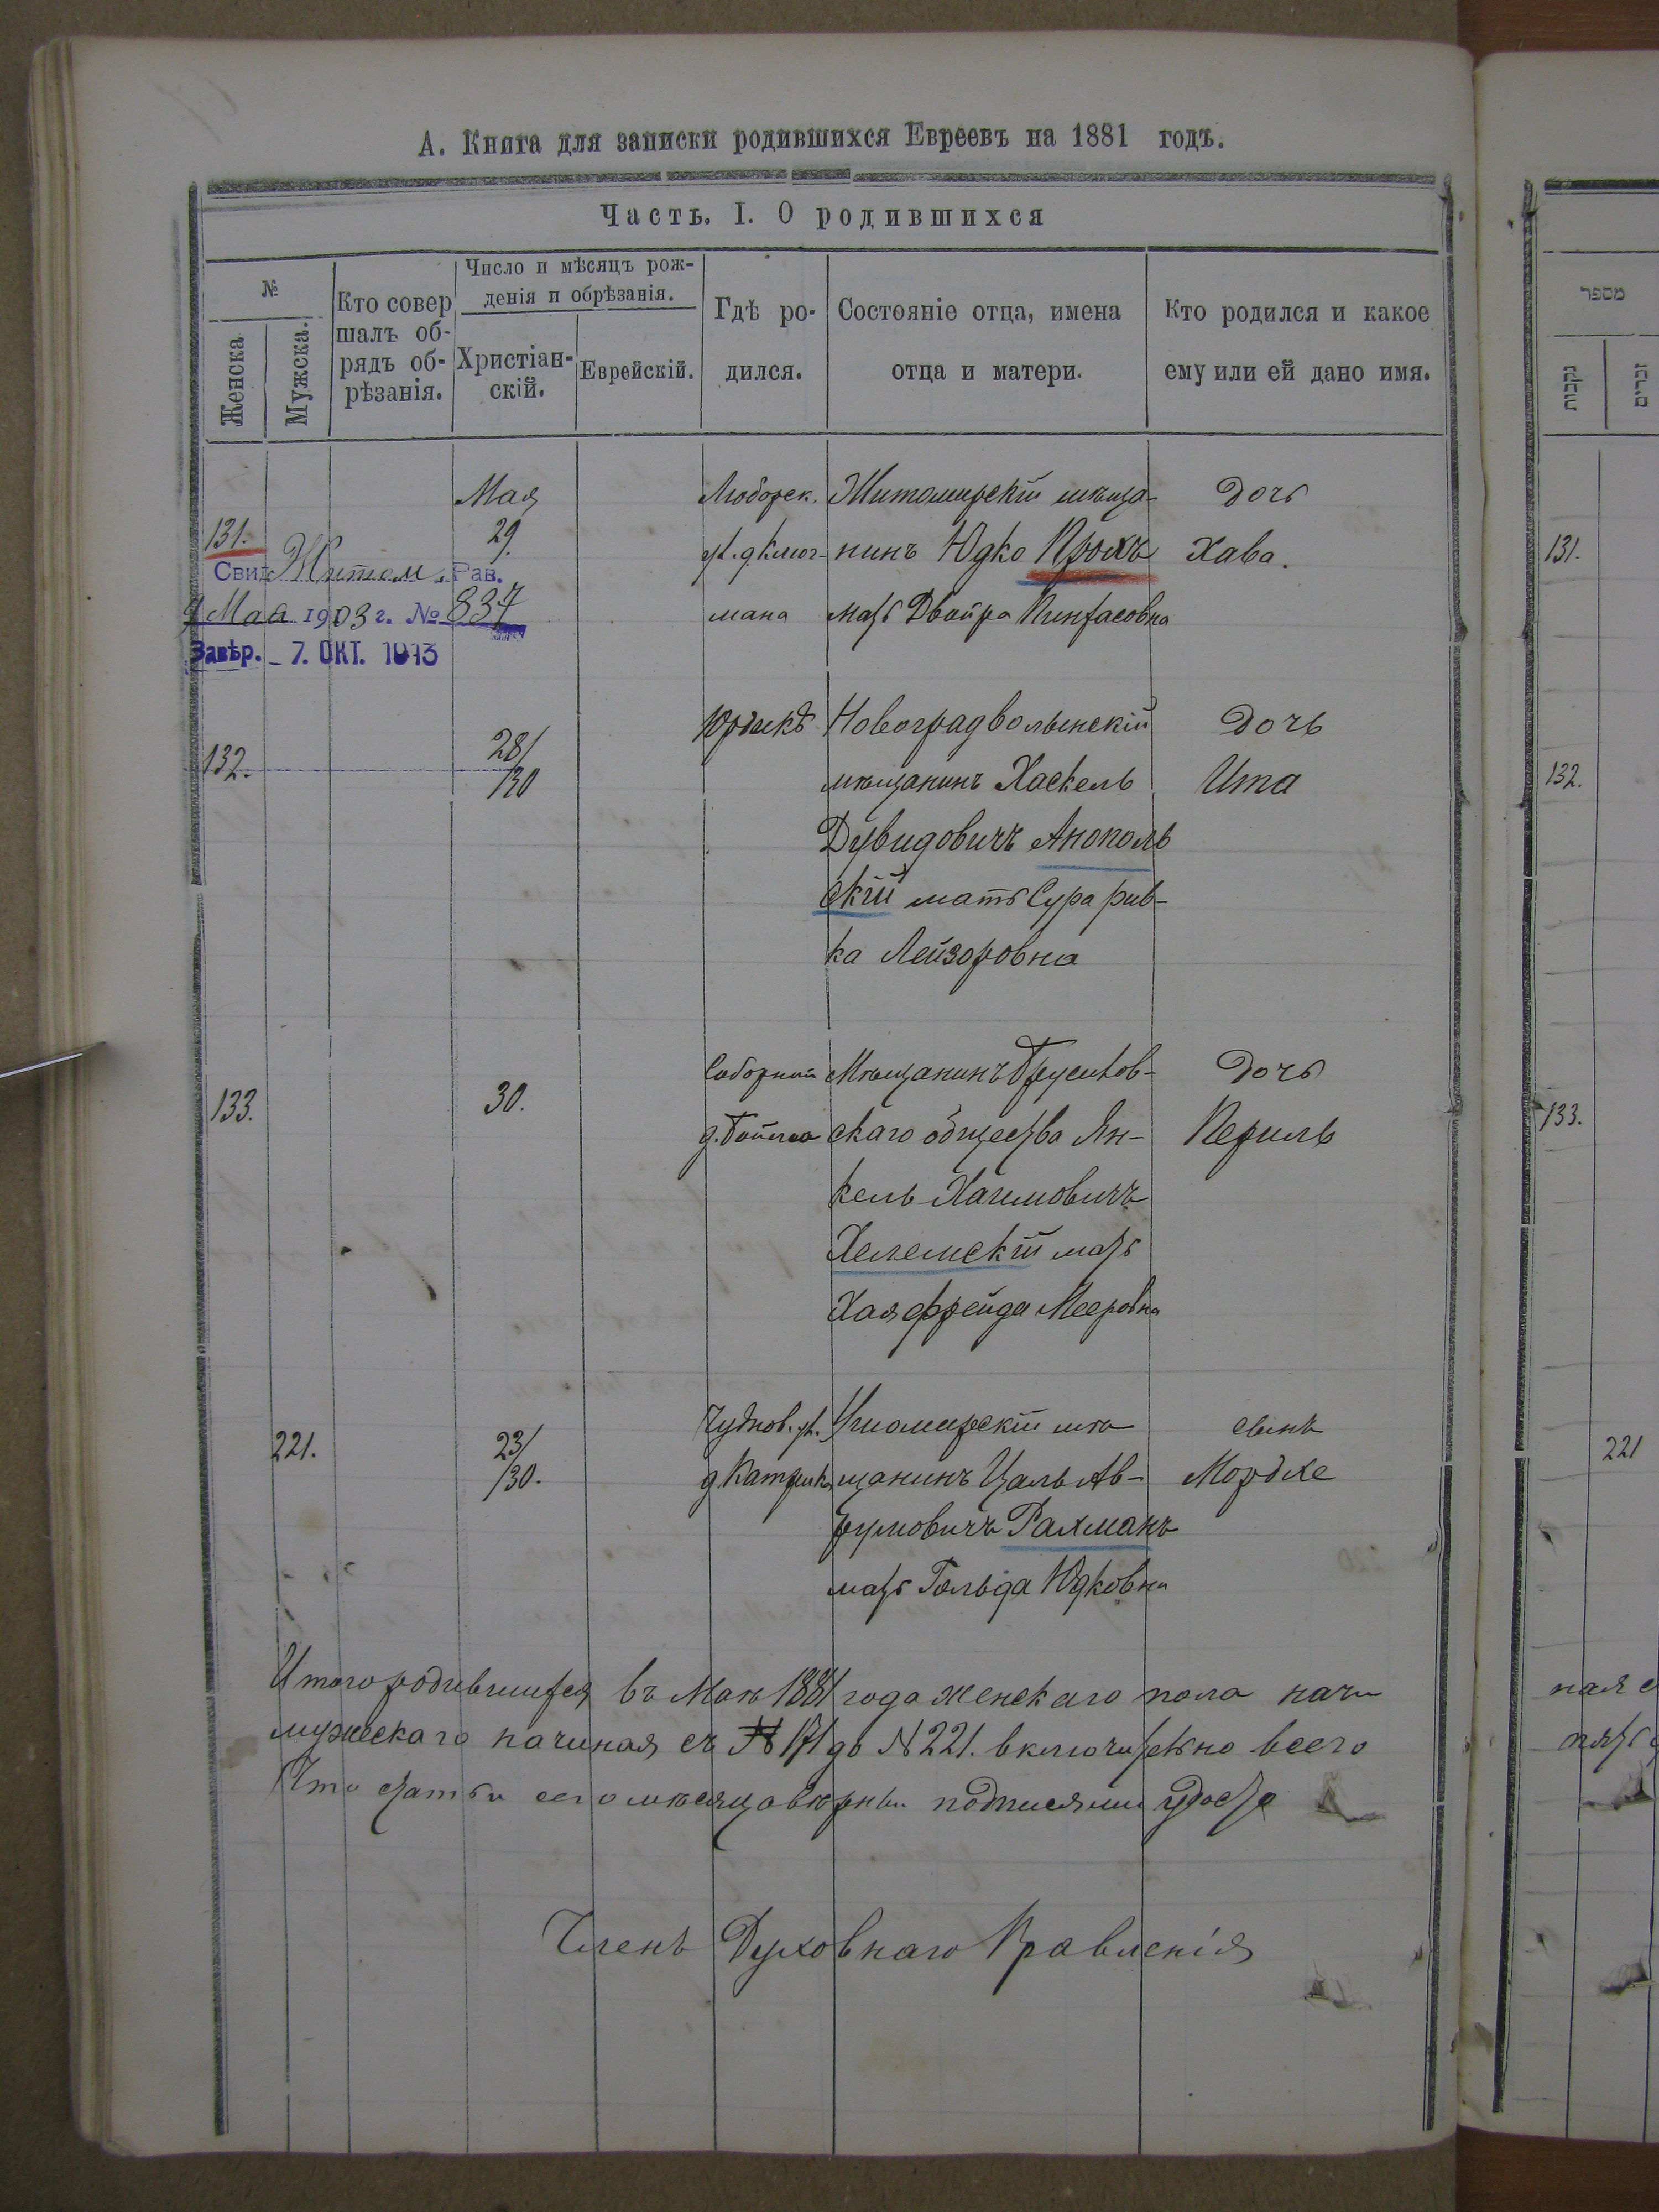 А. Книга для записки родившихся Евреевъ на 1881 годъ.
Часть. I. О родившихся
№
Женска
Мужска.
Кто совер
шалъ об-
рядъ об-
рѣзанія.
Число и мѣсяцъ рож-
денія и обрѣзанія.
Христіан-
скій.
Еврейскій.
Гдѣ ро-
дился.
Состояніе отца, имена
отца и матери.
Кто родился и какое
ему или ей дано имя.
131.
Мая
29.
Любарск.
ул. д Клюг-
мана
Житомирскій мѣща-
нинъ Юдко
мать Двойра Пинхасовна
Дочь
Хава.
Свид. Житом. Рав.
Мая 1903 г. № 837
Завѣр. 7. ОКТ. 1913
132.
28/
/30
Новоградволынскій
мѣщанинъ Хаскель
Дувидовичъ Анополь
скій мать Сура рив-
ка Лейзоровна
Дочь
Ита
133.
30.
Соборная
Мѣщанинъ Трусилов-
скаго общества Ян-
кель Хаимовичъ
Хелемскій мать
Хая фрейда Мееровна
Дочь
Перель
221.
23/
/30.
Чуднов. ул.
мѣ
щанинъ Цаль Ав-
румовичъ Рахманъ
мать Гольда Юдковна
сынъ
Мордхе
Итого родившихся въ Маѣ 1881 года женскаго пола начи
мужескаго начиная съ № 171 до № 221. включительно всего
Что статьи сего мѣсяца вѣрны подписями удосто
Членъ Духовнаго Правленія
מספר
נקבות
זכרים
131.
132.
133.
221
ная с